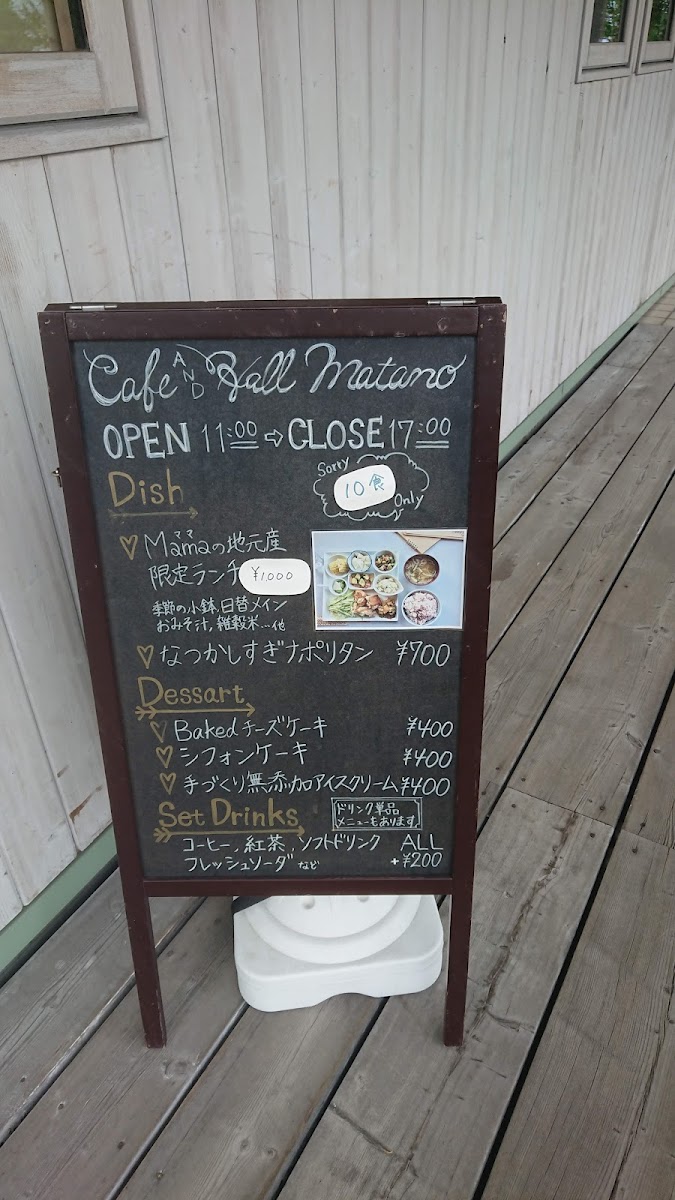 Cafe AND Hall Matano
OPEN 11:00 ⇨ CLOSE 17:00
Dish
Sorry
10食
Only
ママ
Mamaの地元産
限定ランチ ¥1,000
季節の小鉢、日替メイン
おみそ汁、雑穀米…他
なつかしすぎナポリタン ¥700
Dessart
Bakedチーズケーキ ¥400
シフォンケーキ ¥400
手づくり無添加アイスクリーム ¥400
Set Drinks
ドリンク単品
メニューもあります
コーヒー、紅茶、ソフトドリンク ALL
フレッシュソーダ など +¥200